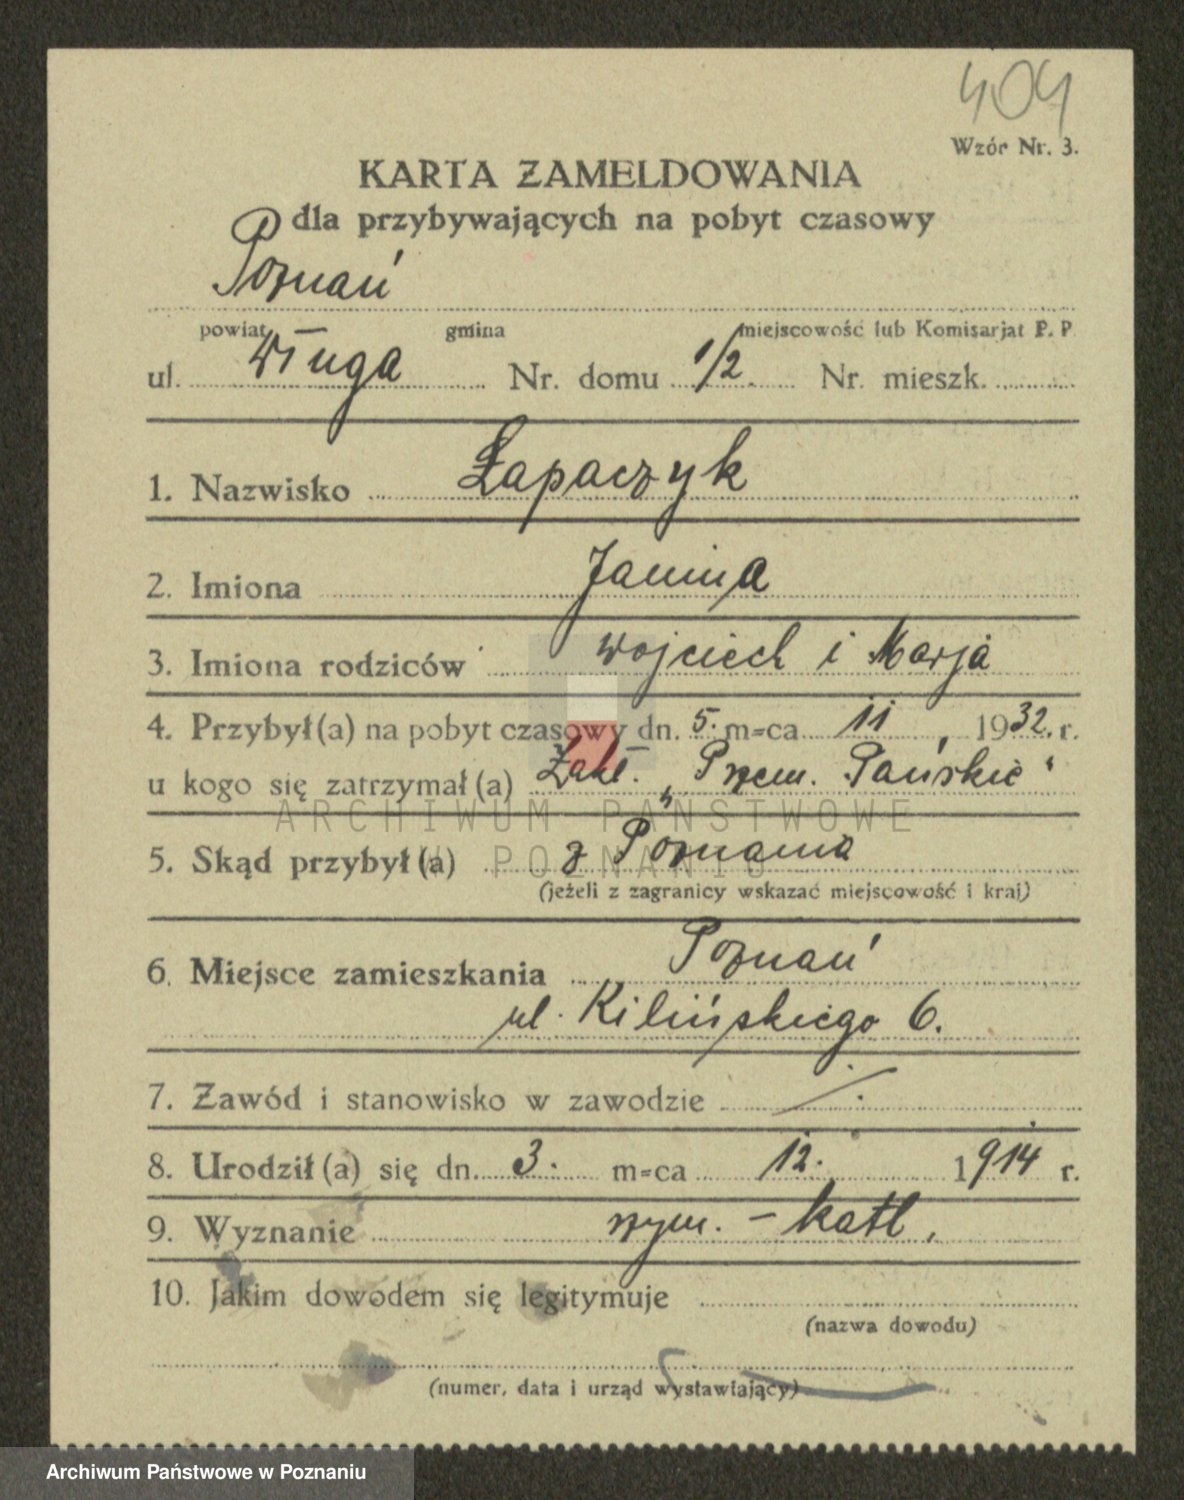 404
Wzór Nr. 3.
KARTA ZAMELDOWANIA
dla przybywających na pobyt czasowy
Poznań
powiat gmina miejscowość lub Komisarjat P. P.
ul. Długa Nr. domu 1/2. Nr. mieszk.
1. Nazwisko Łapaczyk
2. Imiona Janina
3. Imiona rodziców Wojciech i Marja
4. Przybył(a) na pobyt czasowy dn. 5. m=ca 11, 1932. r.
u kogo się zatrzymał(a) Zakł. „Przem. Pańskie"
5. Skąd przybył(a) z Poznania
(jeżeli z zagranicy wskazać miejscowość i kraj)
6. Miejsce zamieszkania Poznań
ul. Kilińskiego 6.
7. Zawód i stanowisko w zawodzie
8. Urodził(a) się dn. 3. m=ca 12. 1914 r.
9. Wyznanie rzym. - katl.
10. Jakim dowodem się legitymuje
(nazwa dowodu)
(numer, data i urząd wystawiający)
ARCHIWUM PAŃSTWOWE
W POZNANIU
Archiwum Państwowe w Poznaniu